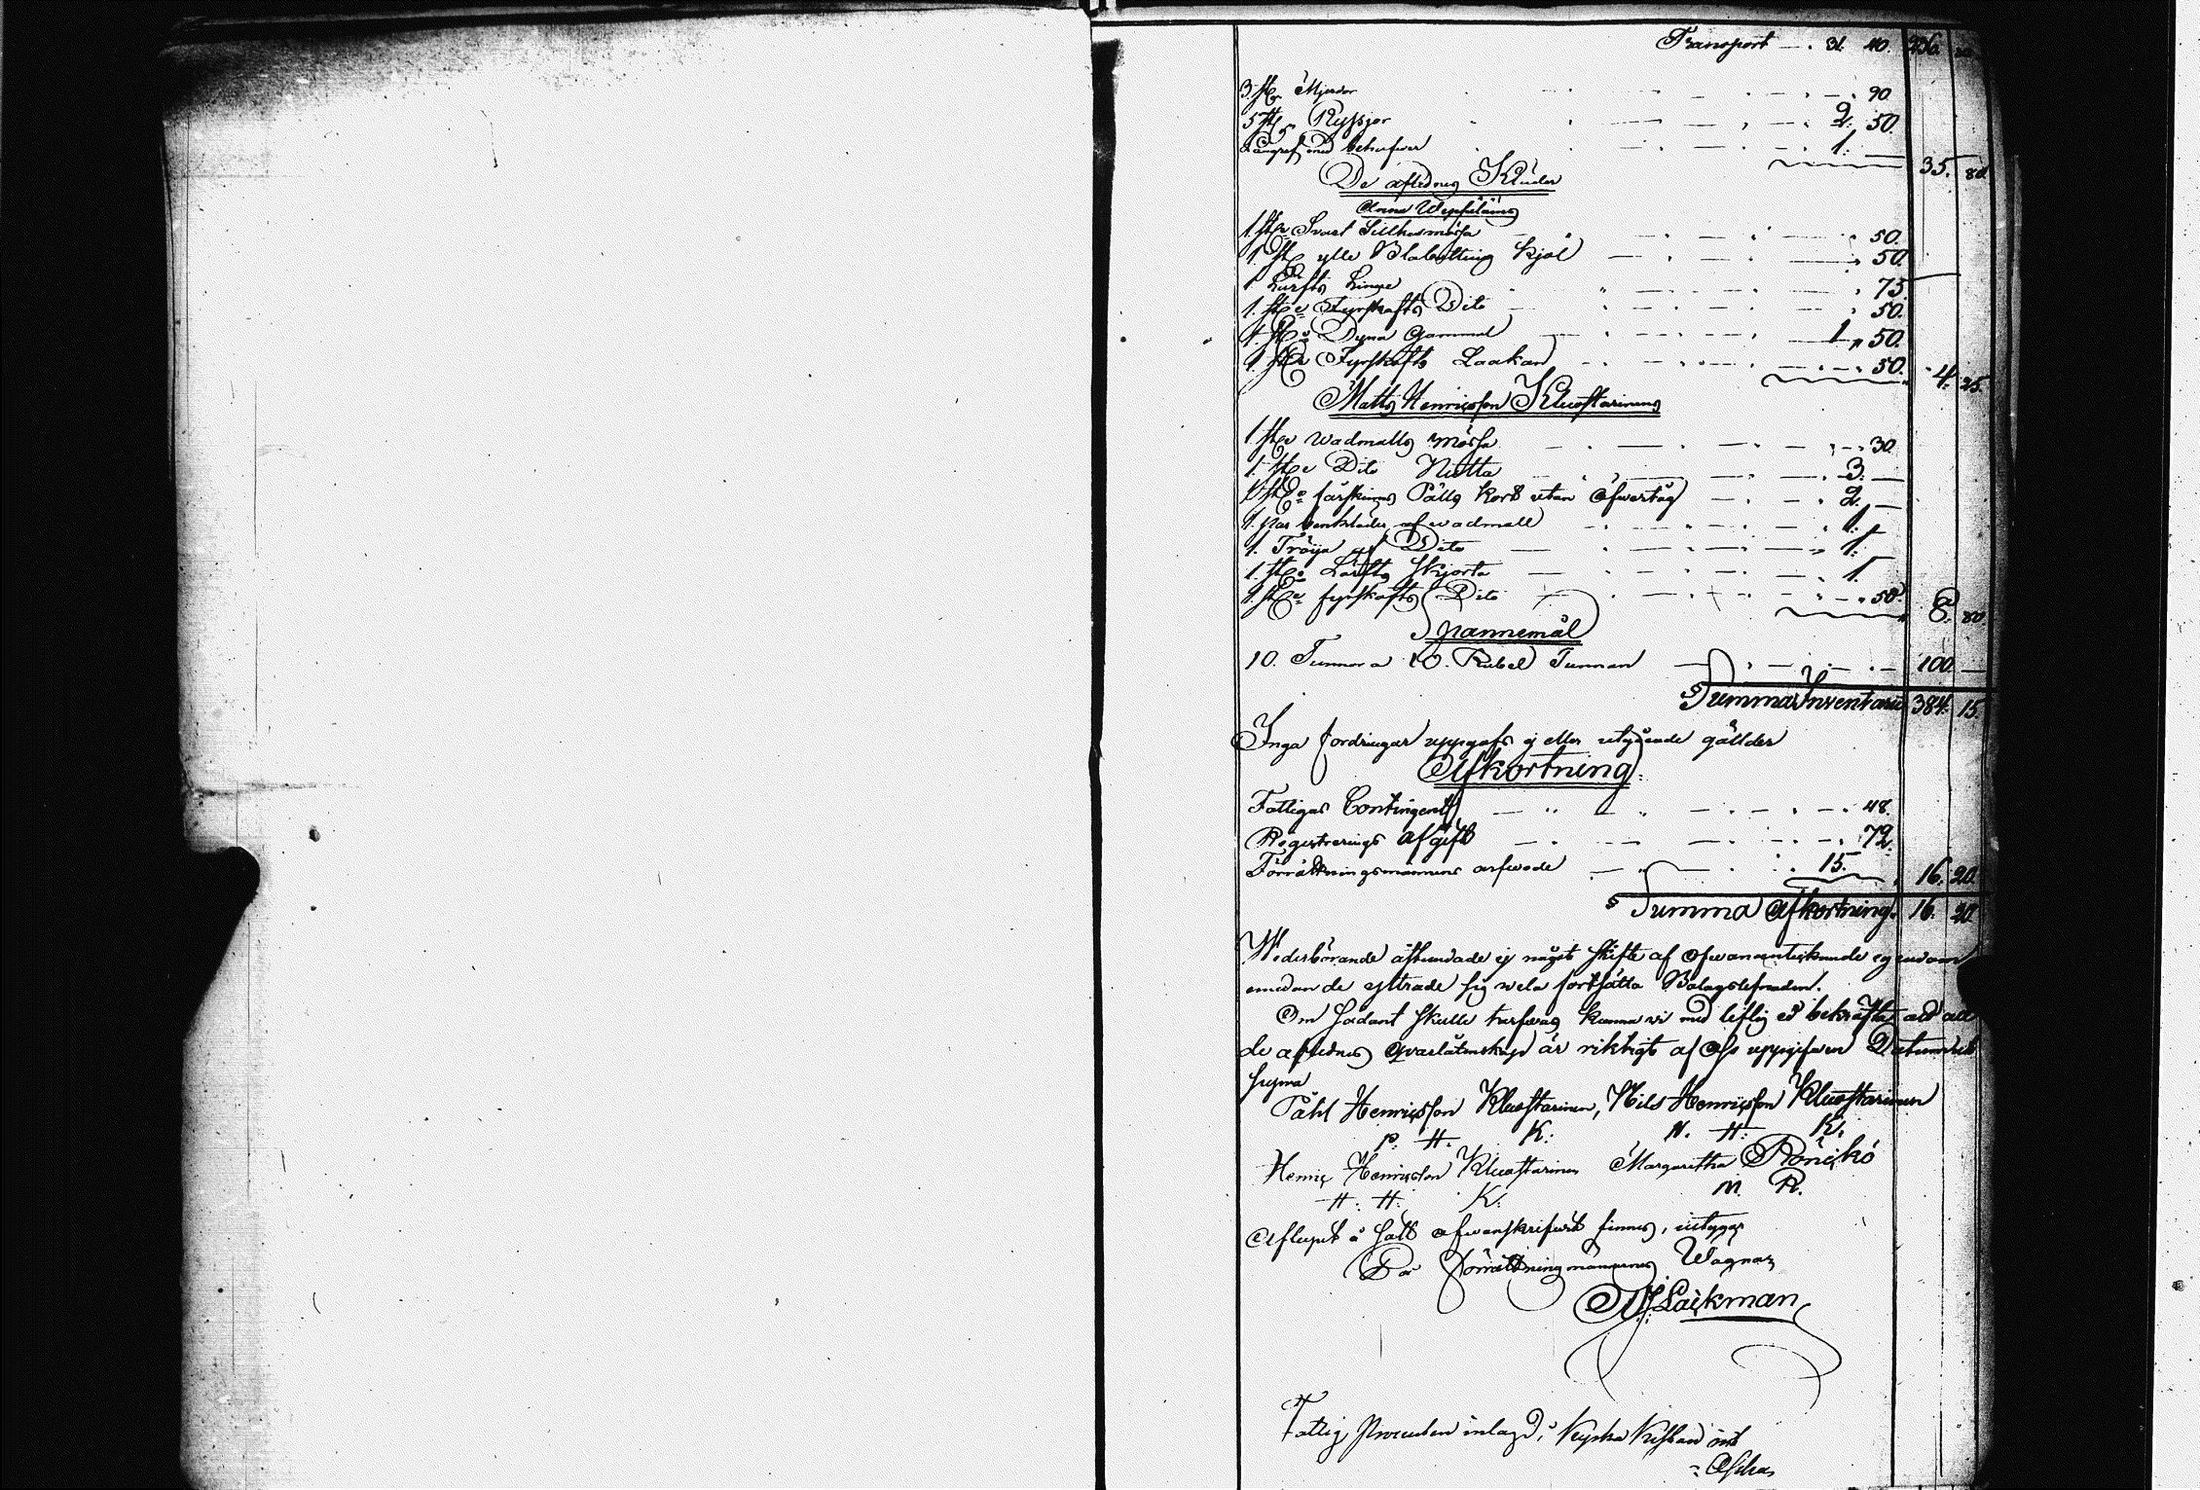 Transport — . 31. 40. 236.
3 st Mjerdor — 90.
5 st Ryssjor — 2. 50.
Långref med behufwer — 1. — 35. 80
De aflednes Kläder
Anna
1. st Svart Silkesmössa — 50.
1. st ylle kjol — 50.
1 Lärfts Linge — 75
1. st Fyrskafts Dito — 50.
1. st Dyna gammal — 1. 50.
1. st Fyrskafts Laakan — 50. 4. 25.
Matts Henricsson Kluostarinens
1 st wadmalls mössa — 30
1. st Dito Nutta — 3. —
1 st fårskinns Pälts kort utan öfwertåg — 2. —
1. par benkläder af wadmall — 1. —
1. Tröija af Dito — 1. —
1. st Lärfts skjorta — 1.
1. st fyrskafts Dito — 50. 8. 80.
Spannemål
10. Tunnor a 10. Rubel Tunnan — 100 —
Summa Inventarii 384. 15.
Inga fordringar uppgafs ej eller utgående gällder
Afkortning.
Fattigas Contingent — 48.
Registrerings afgift — 72.
Förrättningsmännens arfwode — 15. 16. 20.
Summa afkortning. 16. 20.
Wederbörande åstundade ej något skifte af ofwananteknade egendom
emedan de yttrade sig wela fortsätta Bolagslefnaden.
Om sådant skulle tarfwas kunna wi med liflig ed bekräfta att all
de aflednes qwarlåtenskap är riktigt af oss uppgifwen Datum ut
supra
Påhl Henricsson Kluostarinen, Nils Henricsson Kluostarinen
P. H. K: N. H: K:
Henric Henricsson Kluostarinen Margaretha Rönckö
H: H: K: M. R.
Aflupit å sätt ofwanskrifwit finnes, intygar
För förrättningsmännernes Wägnar
Lackman
Fattig Procenten inlagd, i Kyrka Kistan